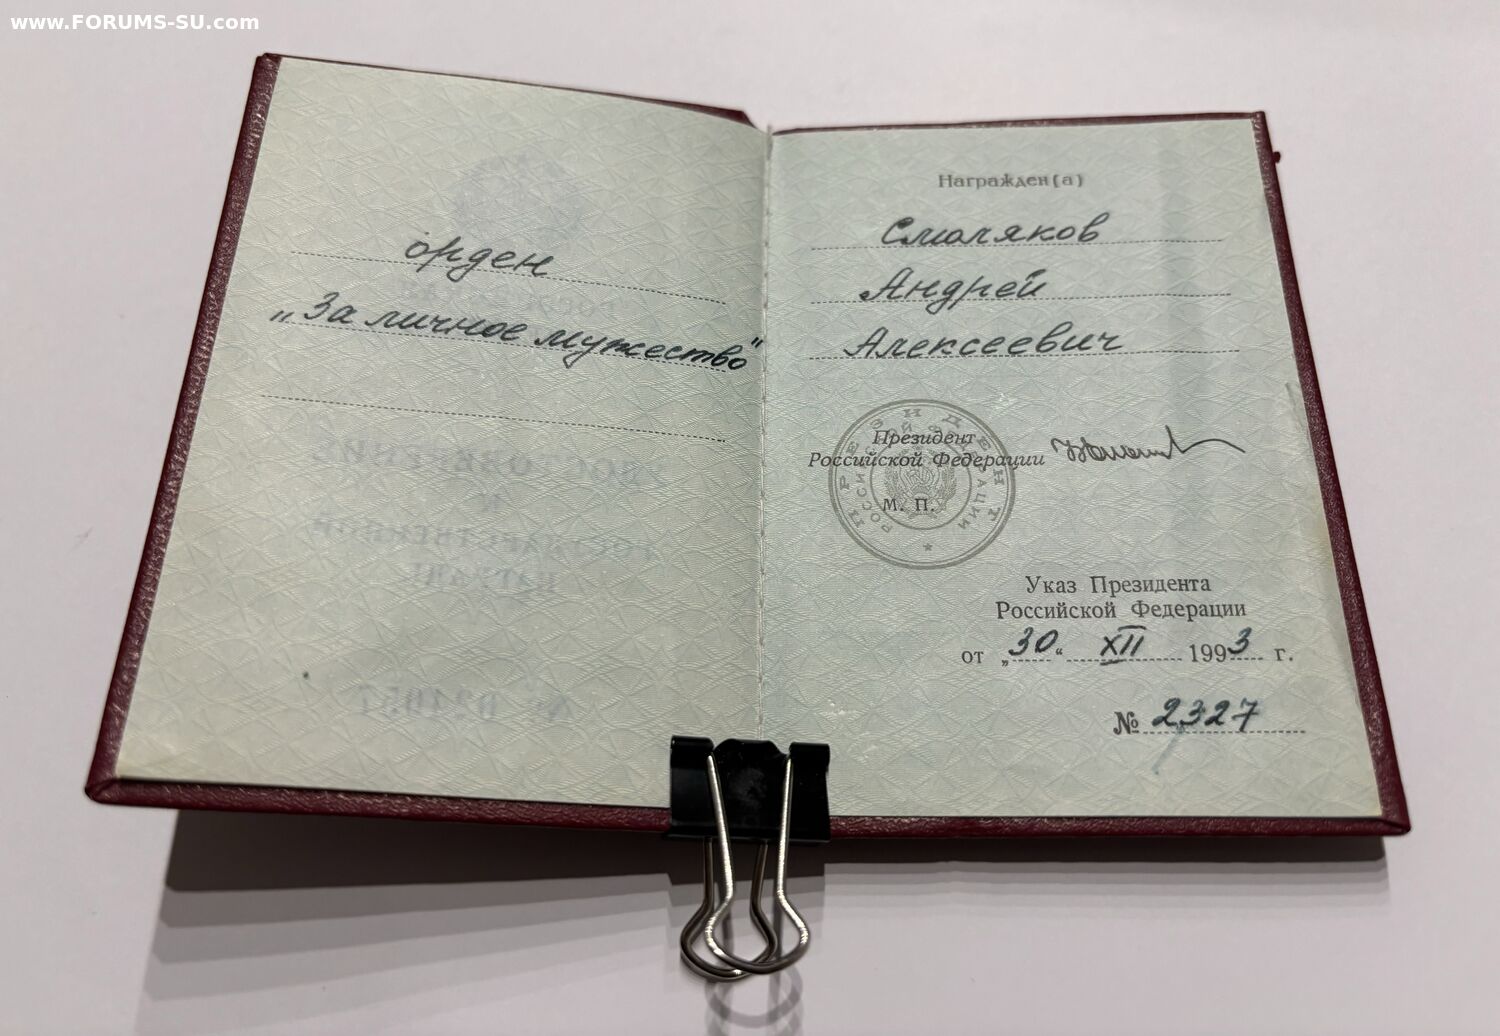 www.FORUMS-SU.com
орден
„За личное мужество"
Награжден(а)
Смоляков
Андрей
Алексеевич
ПРЕЗИДЕНТ
РОССИЙСКОЙ ФЕДЕРАЦИИ
Президент
Российской Федерации
М. П.
Указ Президента
Российской Федерации
от „30“ XII 1993 г.
№ 2327